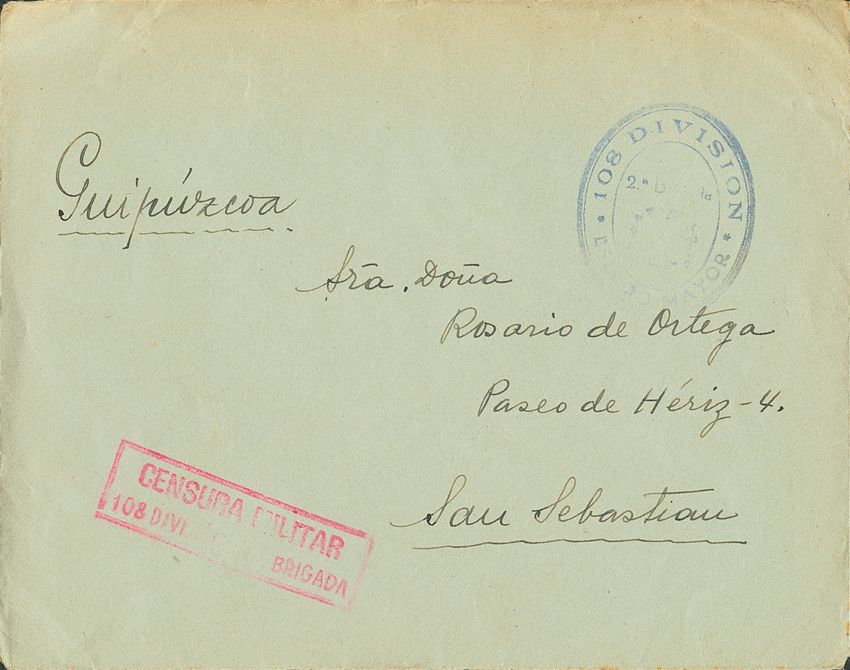 * 108 DIVISION *
2.ª
MAYOR
Guipúzcoa
Sra. Doña
Rosario de Ortega
Paseo de Hériz-4.
San Sebastian
CENSURA MILITAR
108
BRIGADA